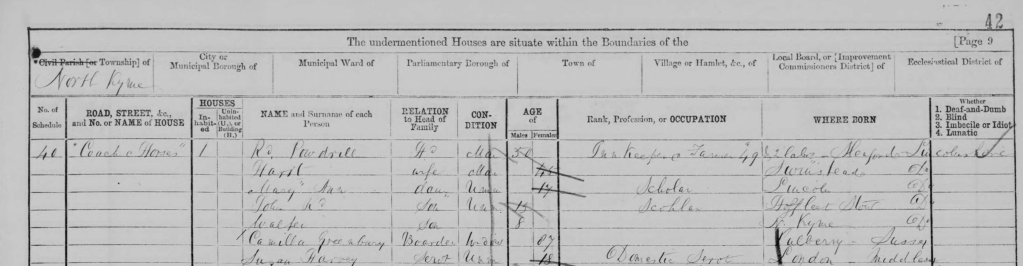 42
The undermentioned Houses are situate within the Boundaries of the [Page 9
Civil Parish [or Township] of City or Municipal Borough of Municipal Ward of Parliamentary Borough of Town of Village or Hamlet, &c., of Local Board, or [Improvement Commissioners District] of Ecclesiastical District of
North Kyme
No. of Schedule ROAD, STREET, &c., and No. or NAME of HOUSE HOUSES Inhabited Uninhabited (U.), or Building (B.) NAME and Surname of each Person RELATION to Head of Family CONDITION AGE of Males Females Rank, Profession, or OCCUPATION WHERE BORN Whether 1. Deaf-and-Dumb 2. Blind 3. Imbecile or Idiot 4. Lunatic
40 "Coach & Horses" 1 Rd Powdrill Hd Mar 50 Inn Keeper & Farmer Lincolnshire
wife Mar Swinstead Do
Mary Ann daur Unm 17 Scholar Lincoln Do
John Rd Son Unm 15 Scohlar Do
Walter Son 8 N. Kyme Do
Camilla Greenbury Boarder Widow 87 Sussex
Susan Harvey Servt Unm 18 Domestic Servt London Middlesex